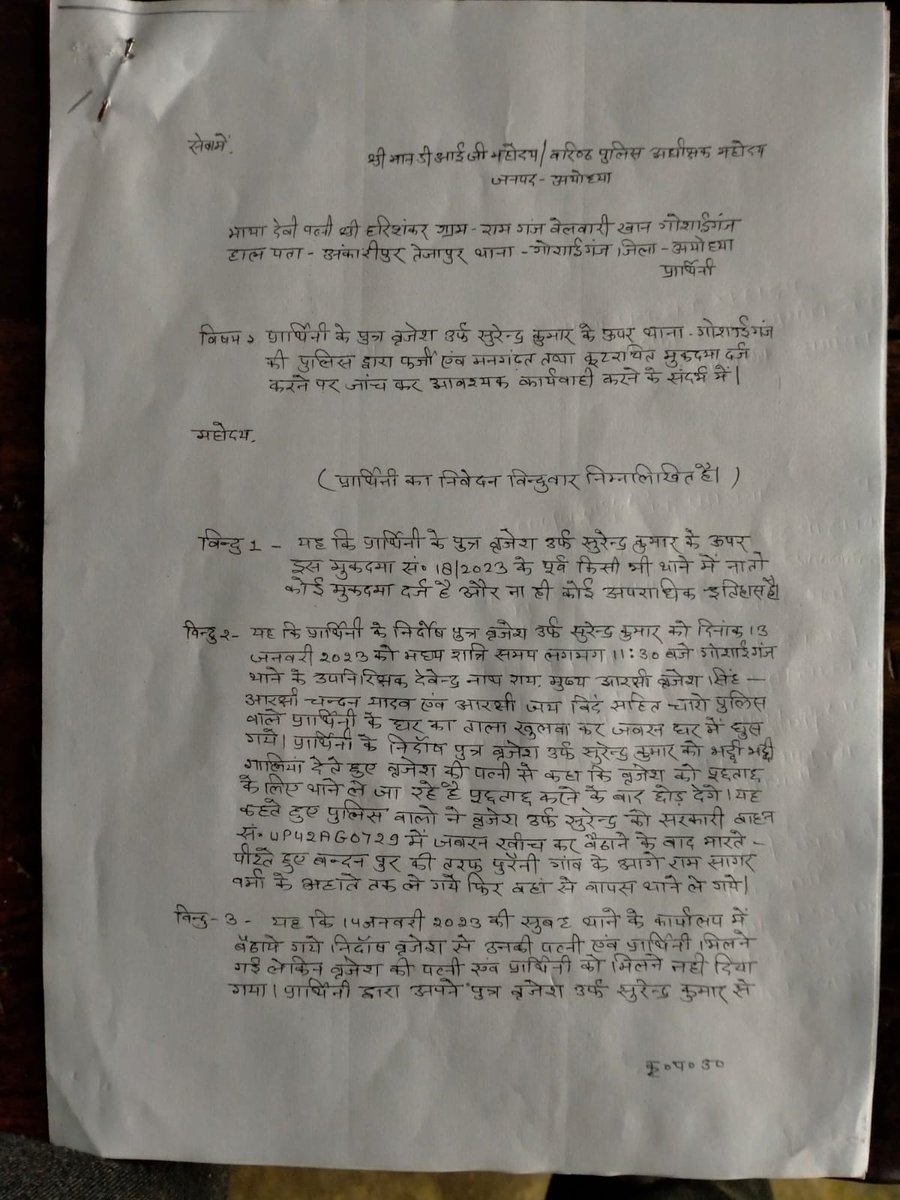 सेवामें,
श्री मान डी आई जी महोदय/ वरिष्ठ पुलिस अधीक्षक महोदय
जनपद - अयोध्या
माया देवी पत्नी श्री हरिशंकर ग्राम - राम गंज वेलवारी खान गोशाईगंज
हाल पता - अंकारीपुर तेजापुर थाना - गोशाईगंज जिला - अयोध्या
प्रार्थिनी
विषय: प्रार्थिनी के पुत्र बृजेश उर्फ सुरेन्द्र कुमार के ऊपर थाना - गोशाईगंज
की पुलिस द्वारा फर्जी एवं मनगंदत तथा कूटरचित मुकदमा दर्ज
करने पर जांच कर आवश्यक कार्यवाही करने के संदर्भ में।
महोदय,
( प्रार्थिनी का निवेदन विन्दुवार निम्नलिखित है। )
विन्दु 1 - यह कि प्रार्थिनी के पुत्र बृजेश उर्फ सुरेन्द्र कुमार के ऊपर
इस मुकदमा सं॰ 18/2023 के पूर्व किसी भी थाने में ना तो
कोई मुकदमा दर्ज है और ना ही कोई अपराधिक इतिहास है।
विन्दु 2 - यह कि प्रार्थिनी के निर्दोष पुत्र बृजेश उर्फ सुरेन्द्र कुमार को दिनांक 13
जनवरी 2023 को मध्य रात्रि समय लगभग 11:30 बजे गोशाईगंज
थाने के उपनिरिक्षक देवेन्द्र नाथ राय, मुख्य आरक्षी बृजेश सिंह -
आरक्षी चन्दन यादव एवं आरक्षी जय विंद सहित चारो पुलिस
वाले प्रार्थिनी के घर का ताला खुलवा कर जबरन घर में घुस
गये। प्रार्थिनी के निर्दोष पुत्र बृजेश उर्फ सुरेन्द्र कुमार को भद्दी भद्दी
गालियां देते हुए बृजेश की पत्नी से कहा कि बृजेश को पूछताछ
के लिए थाने ले जा रहे है पूछताछ करने के बाद छोड़ देगे। यह
कहते हुए पुलिस वालो ने बृजेश उर्फ सुरेन्द्र को सरकारी वाहन
सं॰ UP42AG0729 में जबरन खींच कर बैठाने के बाद मारते -
पीटते हुए बन्दन पुर की तरफ पुरैनी गांव के आगे राम सागर
वर्मा के अहाते तक ले गये फिर वहां से वापस थाने ले गये।
विन्दु - 3 - यह कि 14 जनवरी 2023 की सुबह थाने के कार्यालय में
बैठाये गये निर्दोष बृजेश से उनकी पत्नी एवं प्रार्थिनी मिलने
गई लेकिन बृजेश की पत्नी एवं प्रार्थिनी को मिलने नही दिया
गया। प्रार्थिनी द्वारा अपने पुत्र बृजेश उर्फ सुरेन्द्र कुमार से
कृ॰ प॰ उ॰